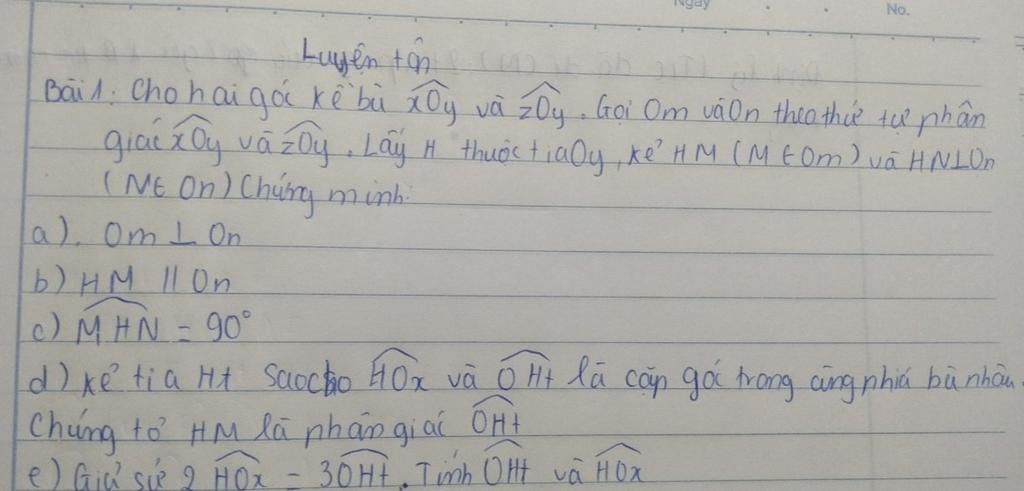 Ngày
No.
Luyện tập
Bài 1: Cho hai góc kề bù xOy và zOy. Gọi Om và On theo thứ tự phân
giác xOy và zOy. Lấy H thuộc tia Oy, kẻ HM (M ∈ Om) và HN⊥On
(N ∈ On) Chứng minh:
a). Om ⊥ On
b) HM // On
c) MHN = 90°
d) kẻ tia Ht sao cho HOx và OHt là cặp góc trong cùng phía bù nhau.
Chứng tỏ HM là phân giác OHt
e) Giả sử 2 HOx = 3OHt. Tính OHt và HOx